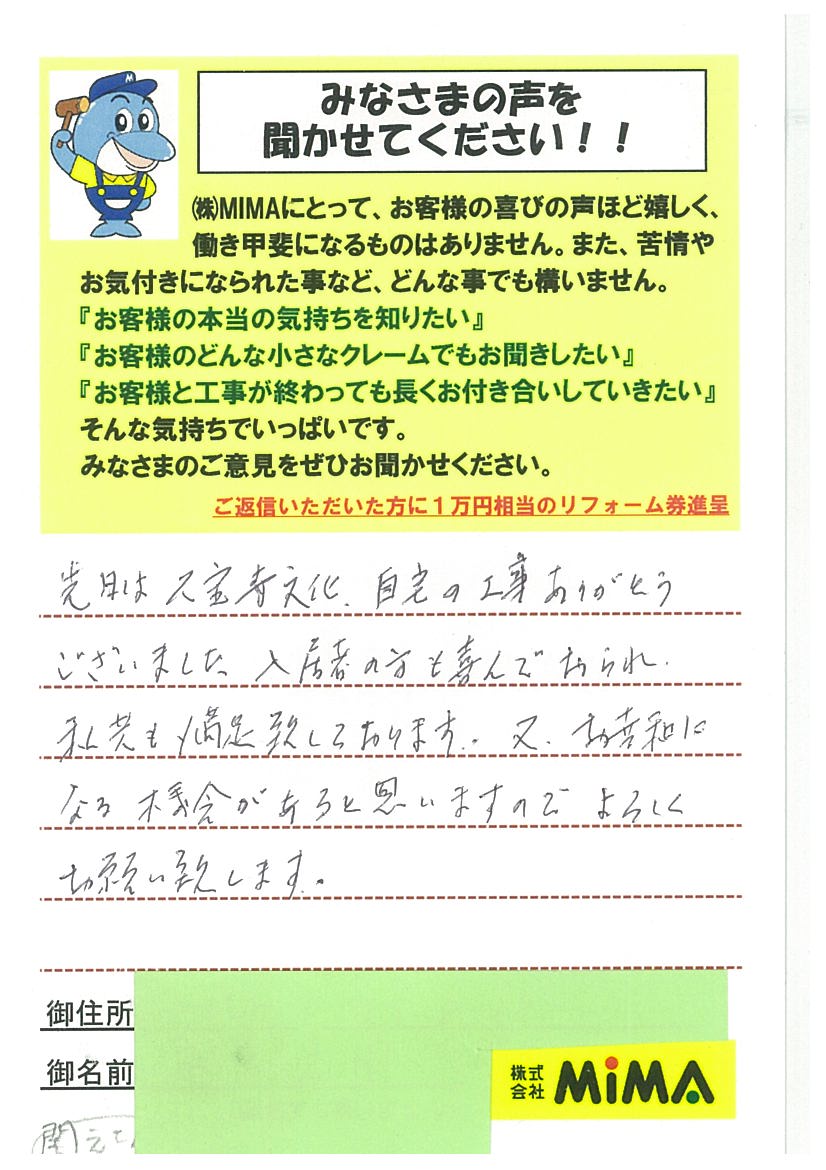 みなさまの声を
聞かせてください！！
M
㈱MIMAにとって、お客様の喜びの声ほど嬉しく、
働き甲斐になるものはありません。また、苦情や
お気付きになられた事など、どんな事でも構いません。
『お客様の本当の気持ちを知りたい』
『お客様のどんな小さなクレームでもお聞きしたい』
『お客様と工事が終わっても長くお付き合いしていきたい』
そんな気持ちでいっぱいです。
みなさまのご意見をぜひお聞かせください。
ご返信いただいた方に１万円相当のリフォーム券進呈
先日は久宝寿文化、自宅の工事ありがとう
ございました。入居者の方も喜んでおられ、
私共も満足致しております。又、お世話に
なる機会があろと思いますのでよろしく
お願い致します。
御住所
御名前
株式会社 MiMA